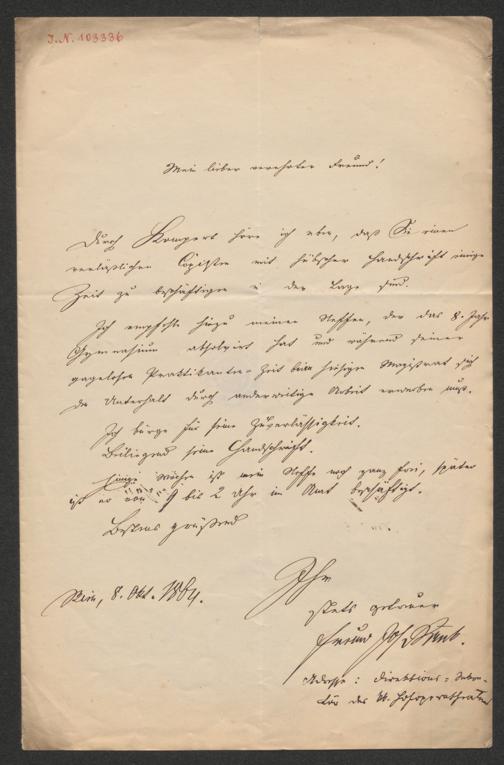 I. N. 103336
Mein lieber verehrter Freund!
Durch Kompert höre ich eben, daß Sie einen
verläßlichen Copisten mit hübscher Handschrift einige
Zeit zu beschäftigen in der Lage sind.
Ich empfehle hiezu meinen Neffen, der das 8. Jahr
Gymnasium absolvirt hat und während seiner
Praktikanten-Zeit beim hiesigen Magistrat sich
den Unterhalt durch anderweitige Arbeit erwerben muß.
Ich bürge für seine Zuverlässigkeit.
Beiliegend seine Handschrift.
Diese Woche ist mein Neffe noch ganz frei, später
ist er von 9 bis 2 Uhr im Amt beschäftigt.
Bestens grüßend
Ihr
Wien, 8. Okt. 1864.
stets getreuer
Freund Jos.
Adresse: Direktions-Sekre-
tär des k. k. Hofoperntheaters